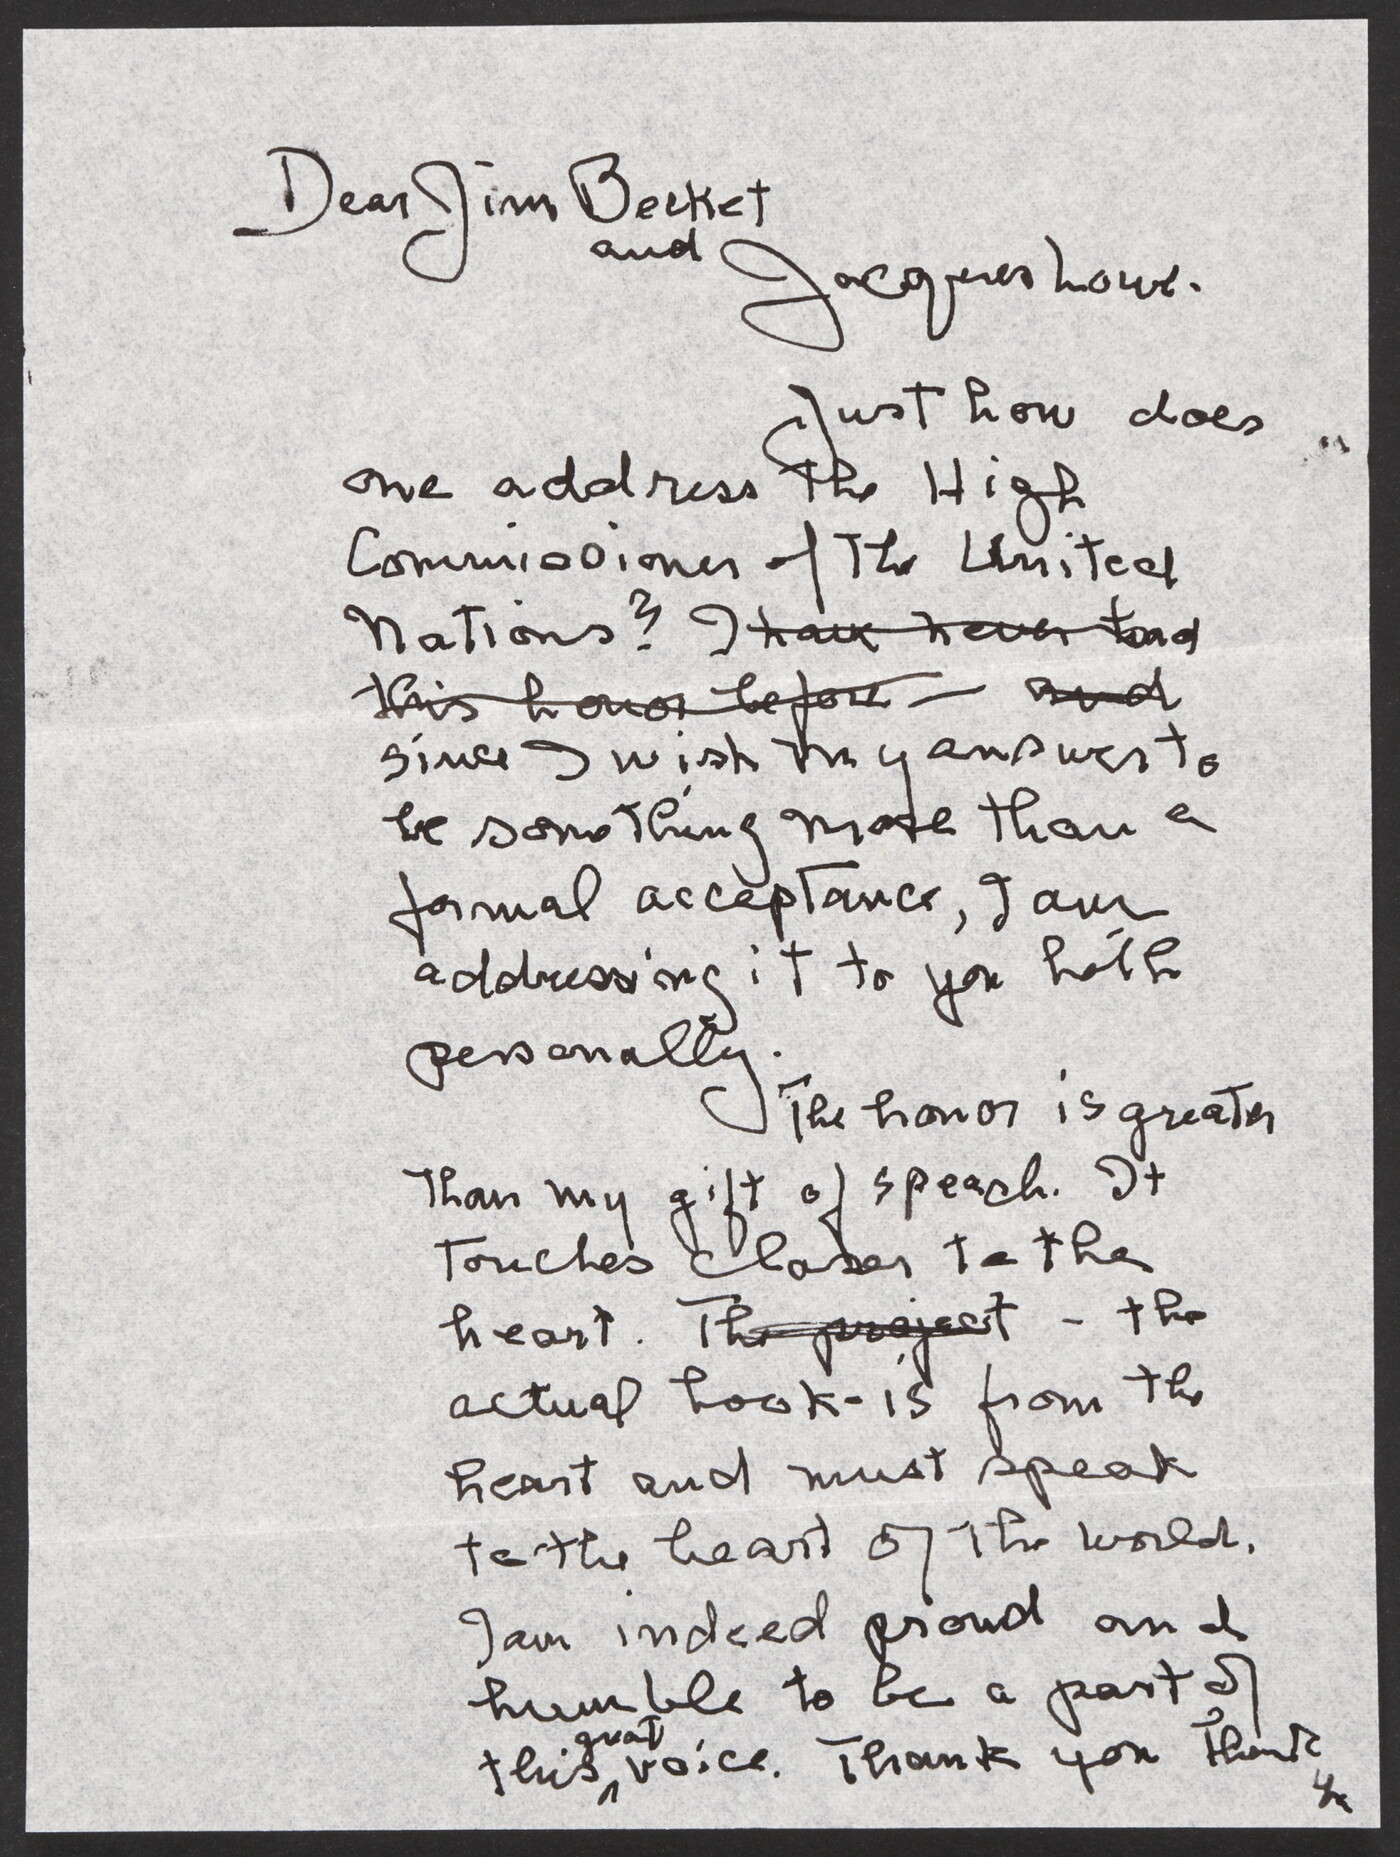 Dear Jim Becket
and
Jacques Lowe.
Just how does
one address the High
Commissioner of the United
Nations? I have never had
this honor before — and
since I wish my answer to
be something more than a
formal acceptance, I am
addressing it to you both
personally.
The honor is greater
than my gift of speach. It
touches closer to the
heart. The project - the
actual book - is from the
heart and must speak
to the heart of the world.
I am indeed proud and
humble to be a part of
great
this voice. Thank you Thank
you